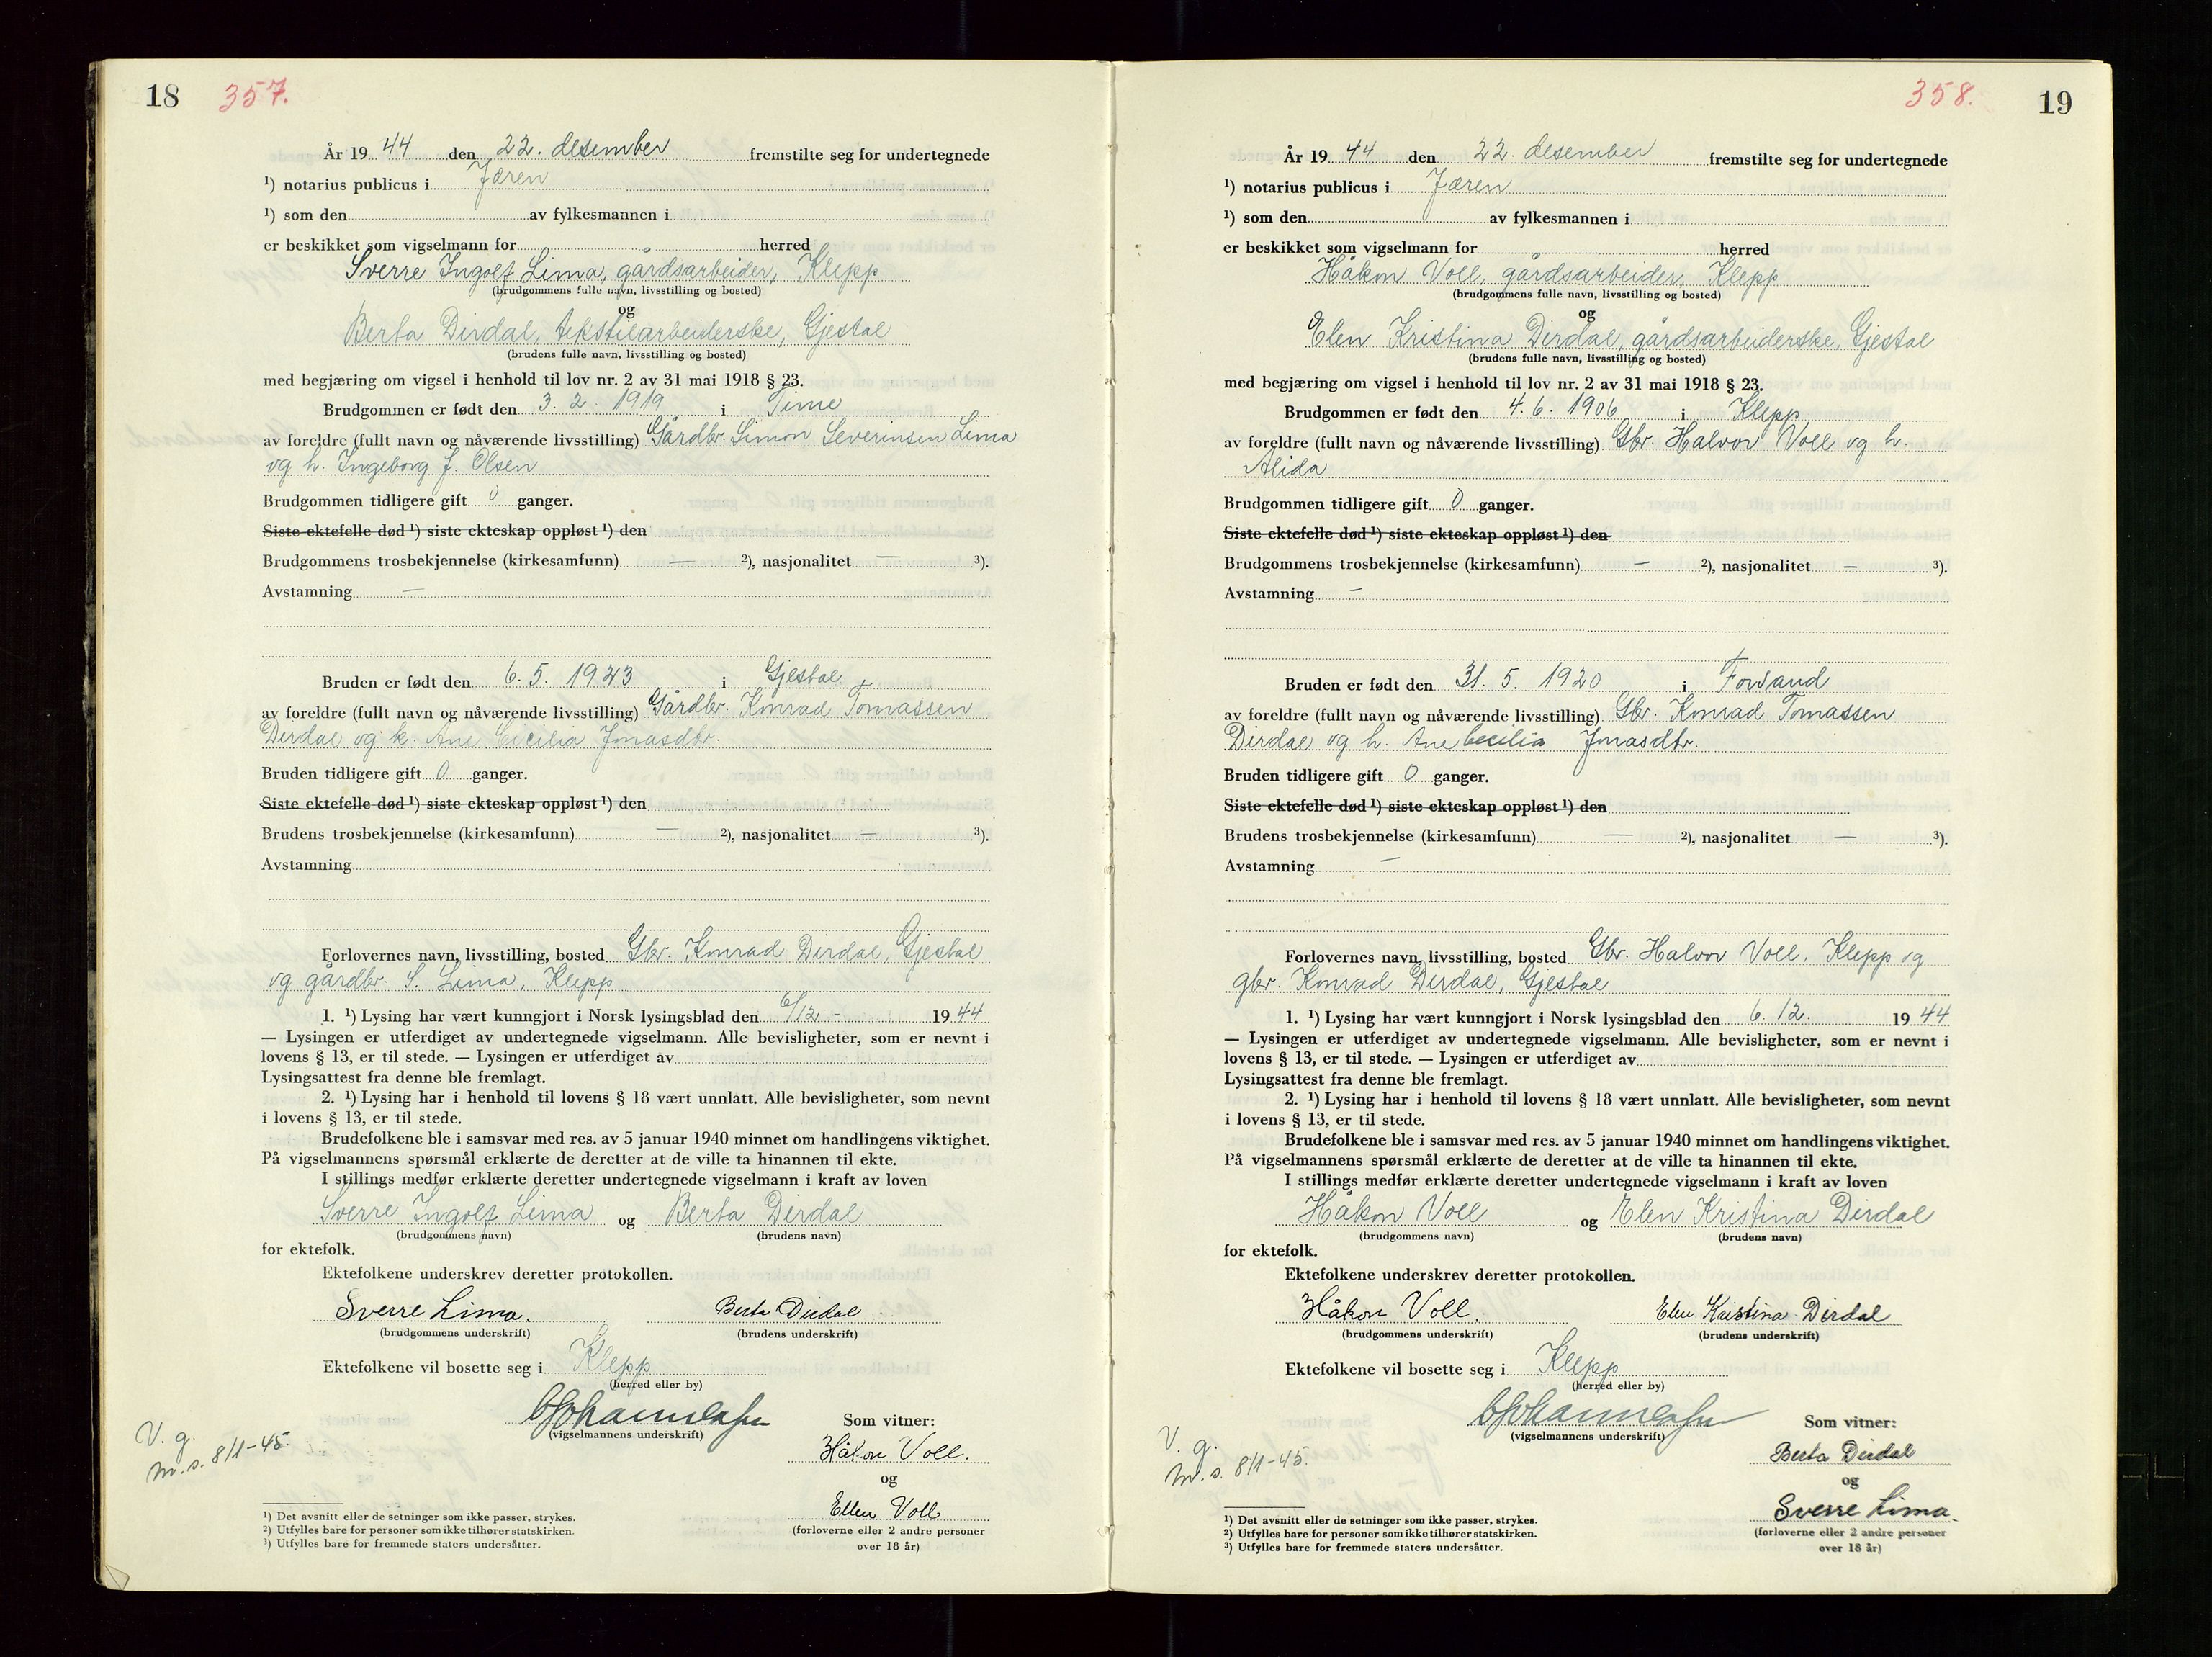 18 357.
År 19 44 den 22. desember fremstilte seg for undertegnede
¹) notarius publicus i Jæren
¹) som den av fylkesmannen i
er beskikket som vigselmann for herred
Sverre Ingolf Lima, gårdsarbeider, Klepp
(brudgommens fulle navn, livsstilling og bosted)
og
Berta Dirdal, tekstilarbeiderske, Gjestal
(brudens fulle navn, livsstilling og bosted)
med begjæring om vigsel i henhold til lov nr. 2 av 31 mai 1918 § 23.
Brudgommen er født den 3. 2. 1919 i Time
av foreldre (fullt navn og nåværende livsstilling) Gårdbr. Simon Severinsen Lima
og h. Ingeborg f. Olsen
Brudgommen tidligere gift 0 ganger.
Siste ektefelle død ¹) siste ekteskap oppløst ¹) den
Brudgommens trosbekjennelse (kirkesamfunn) — ²), nasjonalitet — ³).
Avstamning —
Bruden er født den 6. 5. 1923 i Gjestal
av foreldre (fullt navn og nåværende livsstilling) Gårdbr. Konrad Tomassen
Dirdal og h. Ane Cecilia Jonasdtr.
Bruden tidligere gift 0 ganger.
Siste ektefelle død ¹) siste ekteskap oppløst ¹) den
Brudens trosbekjennelse (kirkesamfunn) — ²), nasjonalitet — ³).
Avstamning
Forlovernes navn, livsstilling, bosted Gbr. Konrad Dirdal, Gjestal
og gårdbr. S. Lima, Klepp
1. ¹) Lysing har vært kunngjort i Norsk lysingsblad den 6/12 - 19 44
— Lysingen er utferdiget av undertegnede vigselmann. Alle bevisligheter, som er nevnt i
lovens § 13, er til stede. — Lysingen er utferdiget av
Lysingsattest fra denne ble fremlagt.
2. ¹) Lysing har i henhold til lovens § 18 vært unnlatt. Alle bevisligheter, som nevnt
i lovens § 13, er til stede.
Brudefolkene ble i samsvar med res. av 5 januar 1940 minnet om handlingens viktighet.
På vigselmannens spørsmål erklærte de deretter at de ville ta hinannen til ekte.
I stillings medfør erklærte deretter undertegnede vigselmann i kraft av loven
Sverre Ingolf Lima og Berta Dirdal
(brudgommens navn) (brudens navn)
for ektefolk.
Ektefolkene underskrev deretter protokollen.
Sverre Lima. Berta Dirdal
(brudgommens underskrift) (brudens underskrift)
Ektefolkene vil bosette seg i Klepp
(herred eller by)
(vigselmannens underskrift) Som vitner:
V. g.
m. s. 8/1-45.
Håkon Voll.
og
Ellen Voll
(forloverne eller 2 andre personer
over 18 år)
¹) Det avsnitt eller de setninger som ikke passer, strykes.
²) Utfylles bare for personer som ikke tilhører statskirken.
³) Utfylles bare for fremmede staters undersåtter.
358. 19
År 19 44 den 22. desember fremstilte seg for undertegnede
¹) notarius publicus i Jæren
¹) som den av fylkesmannen i
er beskikket som vigselmann for herred
Håkon Voll, gårdsarbeider, Klepp
(brudgommens fulle navn, livsstilling og bosted)
og
Elen Kristina Dirdal, gårdsarbeiderske, Gjestal
(brudens fulle navn, livsstilling og bosted)
med begjæring om vigsel i henhold til lov nr. 2 av 31 mai 1918 § 23.
Brudgommen er født den 4. 6. 1906 i Klepp
av foreldre (fullt navn og nåværende livsstilling) Gbr. Halvor Voll og h.
Alida
Brudgommen tidligere gift 0 ganger.
Siste ektefelle død ¹) siste ekteskap oppløst ¹) den
Brudgommens trosbekjennelse (kirkesamfunn) — ²), nasjonalitet — ³).
Avstamning —
Bruden er født den 31. 5. 1920 i Forsand
av foreldre (fullt navn og nåværende livsstilling) Gbr. Konrad Tomassen
Dirdal og h. Ane Cecilia Jonasdtr.
Bruden tidligere gift 0 ganger.
Siste ektefelle død ¹) siste ekteskap oppløst ¹) den
Brudens trosbekjennelse (kirkesamfunn) — ²), nasjonalitet — ³).
Avstamning —
Forlovernes navn, livsstilling, bosted Gbr. Halvor Voll, Klepp og
gbr. Konrad Dirdal, Gjestal
1. ¹) Lysing har vært kunngjort i Norsk lysingsblad den 6. 12. 19 44
— Lysingen er utferdiget av undertegnede vigselmann. Alle bevisligheter, som er nevnt i
lovens § 13, er til stede. — Lysingen er utferdiget av
Lysingsattest fra denne ble fremlagt.
2. ¹) Lysing har i henhold til lovens § 18 vært unnlatt. Alle bevisligheter, som nevnt
i lovens § 13, er til stede.
Brudefolkene ble i samsvar med res. av 5 januar 1940 minnet om handlingens viktighet.
På vigselmannens spørsmål erklærte de deretter at de ville ta hinannen til ekte.
I stillings medfør erklærte deretter undertegnede vigselmann i kraft av loven
Håkon Voll og Elen Kristina Dirdal
(brudgommens navn) (brudens navn)
for ektefolk.
Ektefolkene underskrev deretter protokollen.
Håkon Voll. Elen Kristina Dirdal
(brudgommens underskrift) (brudens underskrift)
Ektefolkene vil bosette seg i Klepp
(herred eller by)
(vigselmannens underskrift) Som vitner:
V. g.
m. s. 8/1-45.
Berta Dirdal
og
Sverre Lima.
(forloverne eller 2 andre personer
over 18 år)
¹) Det avsnitt eller de setninger som ikke passer, strykes.
²) Utfylles bare for personer som ikke tilhører statskirken.
³) Utfylles bare for fremmede staters undersåtter.